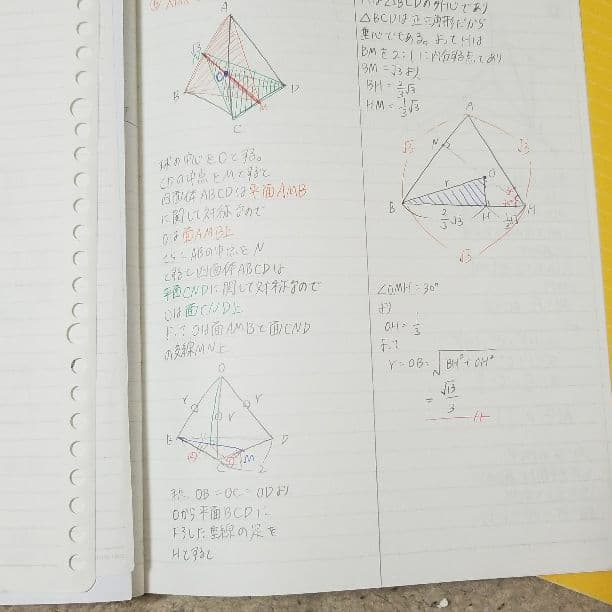 A
√3
O
B
D
C
M
球の中心をOとする。
CDの中点をMとすると
四面体ABCDは平面AMB
に関して対称なので
Oは面AMB上
さらにABの中点をN
とすると四面体ABCDは
平面CNDに関して対称なので
Oは面CND上
よってOは面AMBと面CND
の交線MN上
O
r
r
r
B
D
C
M
2
また、OB=OC=ODより
Oから平面BCDに
下ろした垂線の足を
Hとすると
Hは△BCDの外心であり
△BCDは正三角形だから
重心でもある。よってHは
BMを2:1に内分する点であり
BM=√3より
BH=2/3√3
HM=1/3√3
A
√3
√3
N
O
r
B
H
M
2/3√3
1/3√3
√3
∠OMH=30°
より
OH=1/3
よって
r=OB=√BH²+OH²
=√13/3